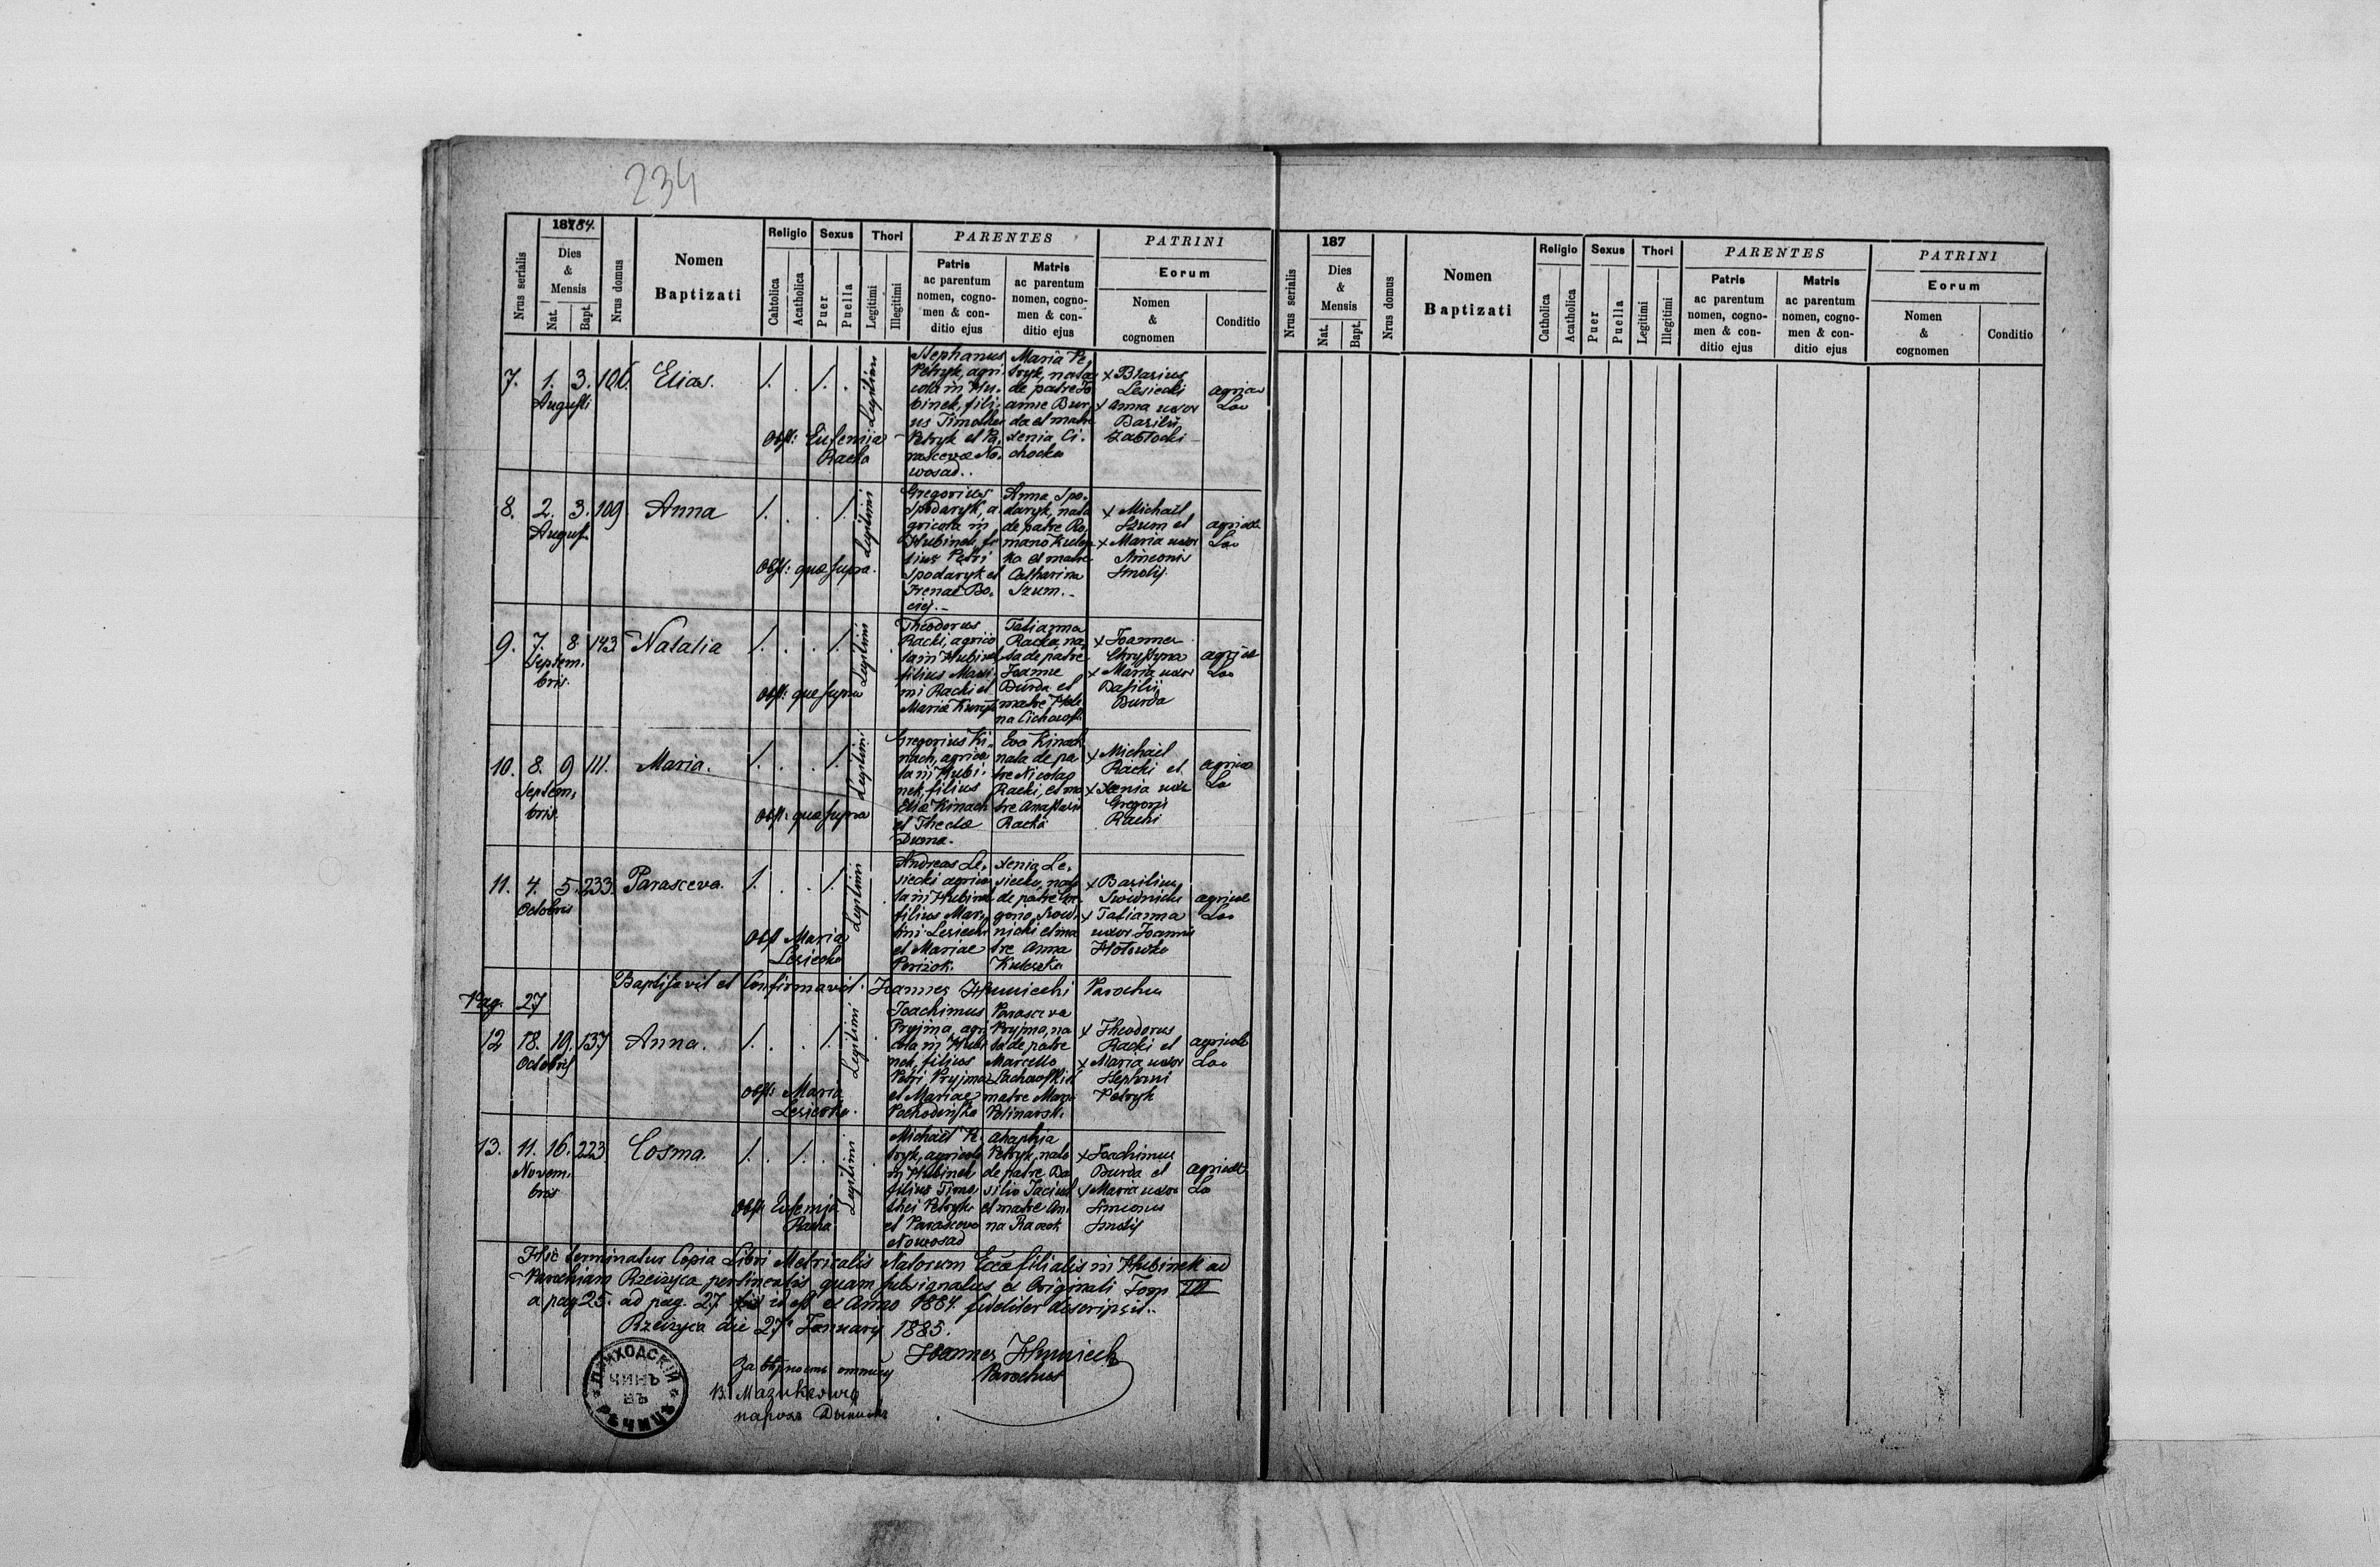 234
187 84.
Nrus serialis
Dies & Mensis
Nat.
Bapt.
Nrus domus
Nomen Baptizati
Religio
Cahtolica
Acatholica
Sexus
Puer
Puella
Thori
Legitimi
Illegitimi
PARENTES
Patris ac parentum nomen, cogno- men & con- ditio ejus
Matris ac parentum nomen, cogno- men & con- ditio ejus
PATRINI
Eorum
Nomen & cognomen
Conditio
7. 1. 3. 106. Elias.
Augusti
Legitimi
Obst: Eufemia
Racka
Stephanus
Petryk, agri-
cola in Hu-
binek, fili-
us Timothei
Petryk et Pa-
rascevæ No-
wosad..
Maria Pe-
tryk, nata
de patre Jo
anne Bur-
da et matre
Xenia Ci-
chocka
x Blasius
Lesiecki
x Anna uxor
Basilii
Zabłocki
agrico
lae
8. 2. 3. 109 Anna
August.
Legitimi
Obst: quæ supra.
Gregorius
Spodaryk, a-
gricola in
Hubinek, fi
lius Petri
Spodaryk et
Irenae Bo-
ciej.-
Anna Spo-
daryk, nata
de patre Ro-
mano Kulesz
ka et matre
Catharina
Szum.-
x Michael
Szum et
x Maria uxor
Simeonis
Smolij
agrico
lae
9. 7. 8. 143 Natalia
Septem-
bris.
Legitimi
Obst: quæ supra
Theodorus
Racki, agrico
la in Hubinek
filius Maxi-
mi Racki et
Mariæ
Tatianna
Racka, na-
ta de patre
Joanne
Burda et
matre Hele
na
x Joannes
Chrystyna
x Maria uxor
Basilii
Burda
agrico
lae
10. 8. 9 111. Maria.
Septem-
bris.
Legitimi
Obst: quæ supra
Gregorius Ki-
nach, agrico
la in Hubi-
nek, filius
Eliæ Kinach
et Theclæ
Duma.
Eva Kinach
nata de pa-
tre Nicolao
Racki, et ma
tre Anastasia
Racka
x Michael
Racki et
x Xenia uxor
Gregorii
Racki
agrico
lae
11. 4. 5. 233. Parasceva.
Octobris
Legitimi
Obst Maria
Lesiecka
Andreas Le-
siecki agrico
la in Hubinek
filius Mar-
tini Lesiecki
et Mariae
Xenia Le-
siecka, nata
de patre Gre
gorio Swid-
nicki et ma
tre Anna
Kuleszka
x Basilius
Swidnicki
x Tatianna
uxor Joannis
Hołowko
agricol
lae
Baptisavit et Confirmavit: Joannes Hruniecki Parochus
Pag. 27
12 18. 19. 137 Anna.
Octobris
Legitimi
Obst: Maria
Lesiecka.
Joachimus
Pryjma, agri
cola in Hubi
nek, filius
Petri Pryjma
et Mariae
Parasceva
Pryjma, na
ta de patre
Marcello
matre Maria
x Theodorus
Racki et
x Maria uxor
Stephani
Petryk
agricol
lae
13. 11. 16. 223. Cosma.
Novem-
bris
Legitimi
Obst: Eufemia
Racka
Michael Pe-
tryk, agricola
in Hubinek
filius Timo-
thei Petryk
et Parasceva
Nowosad
Ahaphia
Petryk, nata
de patre Ba
silio
et matre An-
na
x Joachimus
Burda et
x Maria uxor
Simeonis
Smolij
agricol
lae
Hic terminatur Copia Libri Metricalis Natorum Eccæ filialis in Hubinek ad
Parochiam Rzeczyca pertinentis quam subsignatus ex Originali Tom III
a pag. 25. ad pag. 27 id est ex Anno 1884. fideliter descripsit.-
Rzeczyca die 27 Januarij 1885.
Joannes Hruniecki
Parochus
За вѣрность
В. Мазикевичъ
парохъ
ПРИХОДСКІЙ ЧИНЪ ВЪ РѢЧИЦѢ
187
Nrus serialis
Dies & Mensis
Nat.
Bapt.
Nrus domus
Nomen Baptizati
Religio
Catholica
Acatholica
Sexus
Puer
Puella
Thori
Legitimi
Illegitimi
PARENTES
Patris ac parentum nomen, cogno- men & con- ditio ejus
Matris ac parentum nomen, cogno- men & con- ditio ejus
PATRINI
Eorum
Nomen & cognomen
Conditio